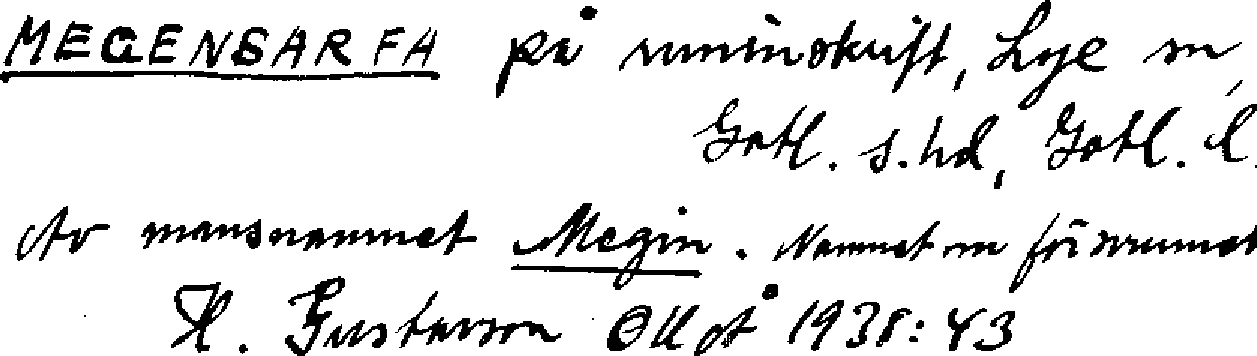 MEGENSARFA på runinskrift, Lye sn,
Gotl. s. hd, Gotl. l.
Av mansnamnet Megin. Namnet nu försvunnet
H. Gustavson GUÅ 1938:43